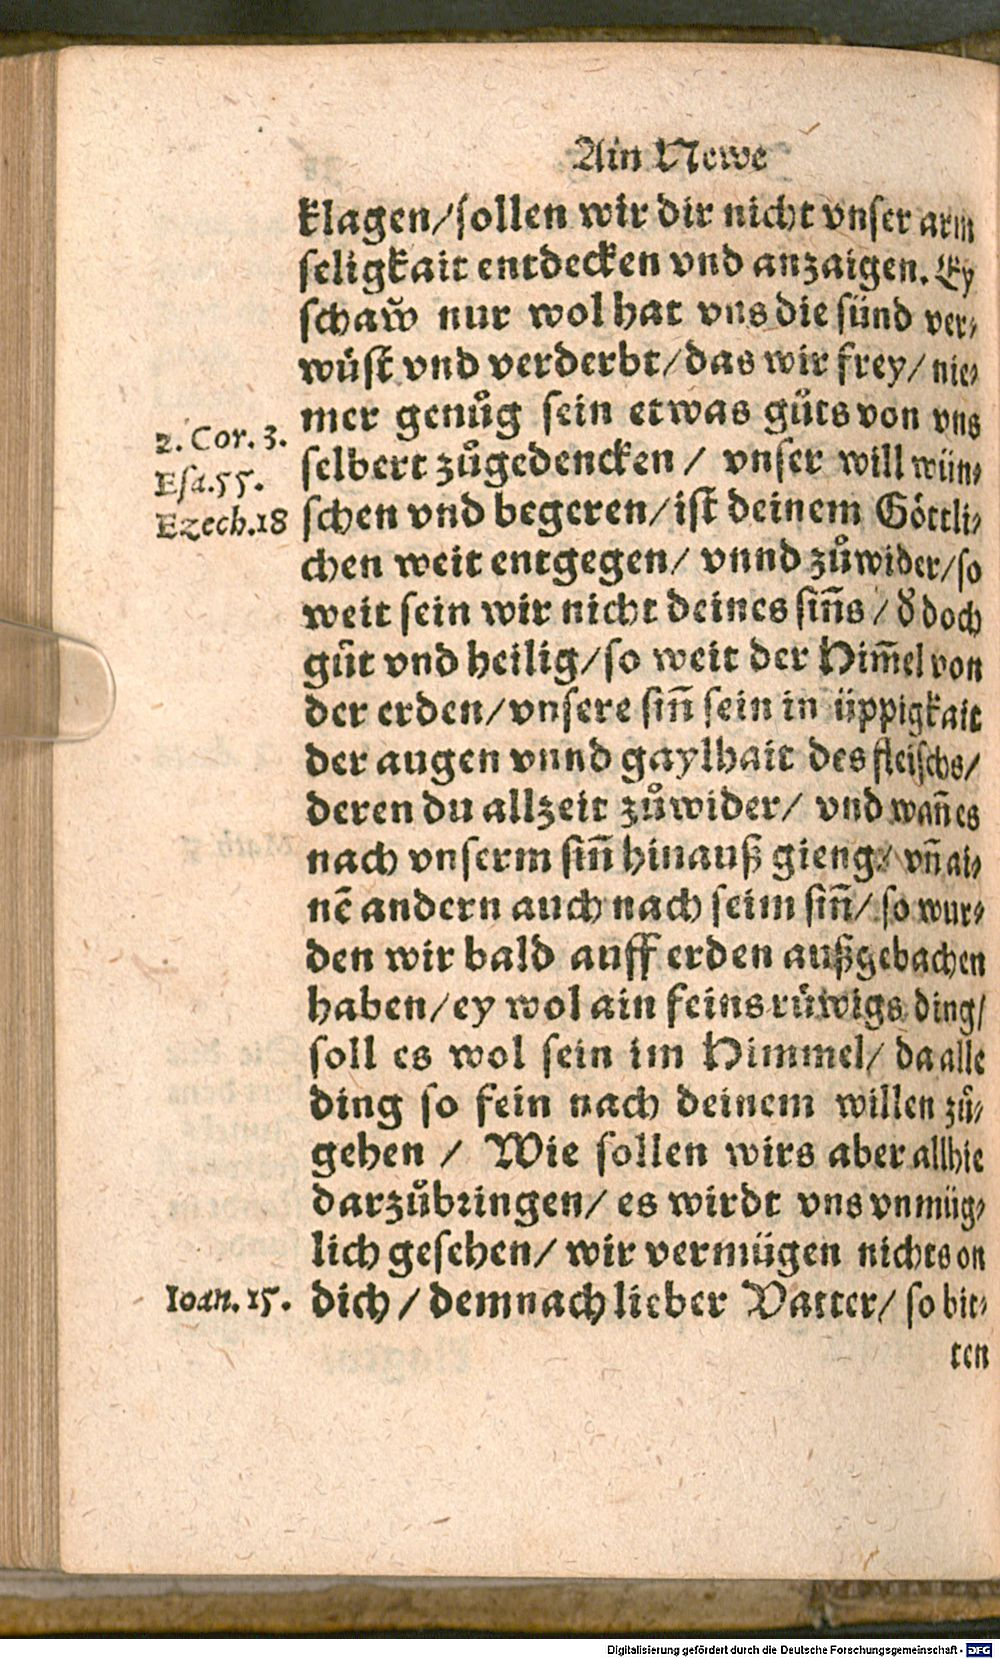 Ain Newe
klagen/sollen wir dir nicht vnser arm
seligkait entdecken vnd anzaigen. Ey
schaw̆ nur wol hat vns die sünd ver⸗
wüst vnd verderbt/das wir frey/nie⸗
mer genůg sein etwas gůts von vns
2. Cor. 3.
selbert zůgedencken / vnser will wün⸗
Esa.55.
schen vnd begeren/ist deinem Göttli⸗
Ezech.18
chen weit entgegen/ vnnd zůwider/so
weit sein wir nicht deines siñs / d̕ doch
gůt vnd heilig/so weit der Him̃el von
der erden/vnsere siñ sein in üppigkait
der augen vnnd gaylhait des fleischs/
deren du allzeit zůwider/ vnd wañ es
nach vnserm siñ hinauß gieng/ vñ ai⸗
nẽ andern auch nach seim siñ/ so wur⸗
den wir bald auff erden außgebachen
haben/ey wol ain feins růwigs ding/
soll es wol sein im Himmel/ da alle
ding so fein nach deinem willen zů⸗
gehen / Wie sollen wirs aber allhie
darzůbringen/ es wirdt vns vnmüg⸗
lich gesehen/ wir vermügen nichts on
Ioan. 15.
dich / demnach lieber Vatter/ so bit⸗
ten
Digitalisierung gefördert durch die Deutsche Forschungsgemeinschaft - DFG